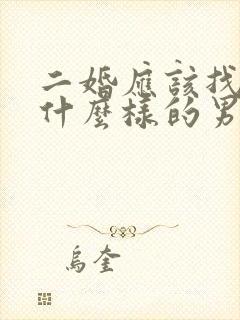 二婚應該找
什麼樣的男
烏奎